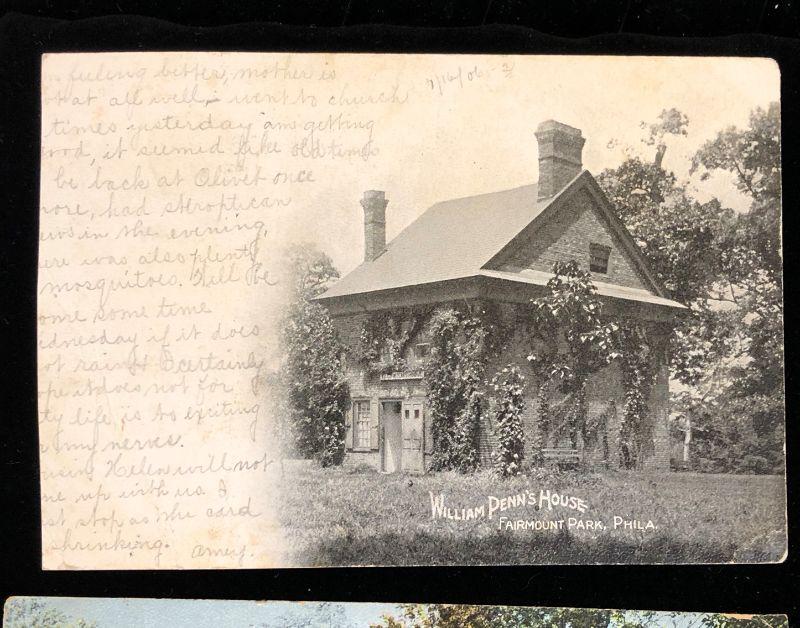 7/16/06
feeling better, mother is
at all well, went to church
times yesterday am getting
good, it seemed like old times
be back at Olivet once
more, had steroptican
views in the evening,
there was also plenty
mosquitoes. Will be
home some time
Wednesday if it does
not rain & I certainly
hope it does not for
City life is to exciting
my nerves.
Cousin Helen will not
come up with us. I
must stop as the card
shrinking. Amey.
WILLIAM PENN'S HOUSE
FAIRMOUNT PARK, PHILA.